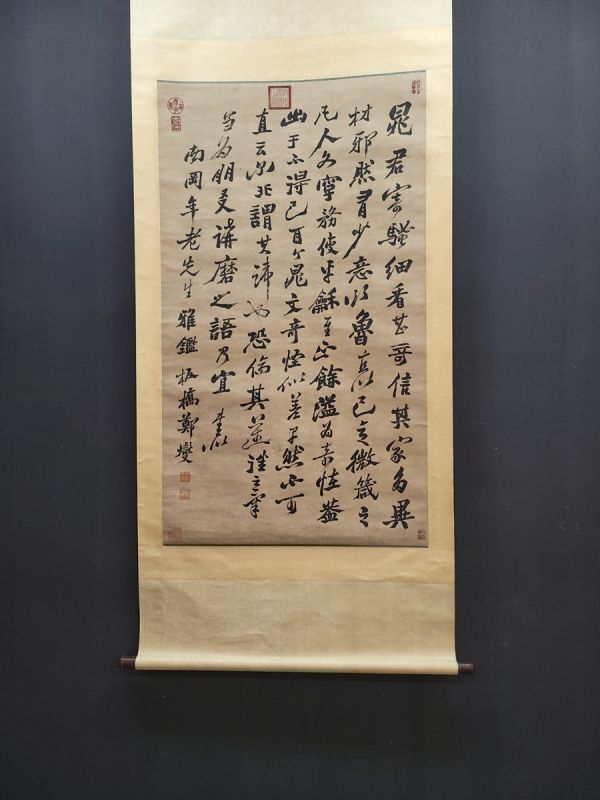 晁君寄騷細看甚奇信其家多異
材邪然有少意欲魯直以己意微箴之
凡人文字務使平龢至足餘溢為奇怪蓋
出于不得已耳晁文奇怪似差早然不可
直云尔非謂其諱也恐傷其邁往之氣
当为朋友講磨之語乃宜
南岡年老先生雅鑑 板橋鄭燮